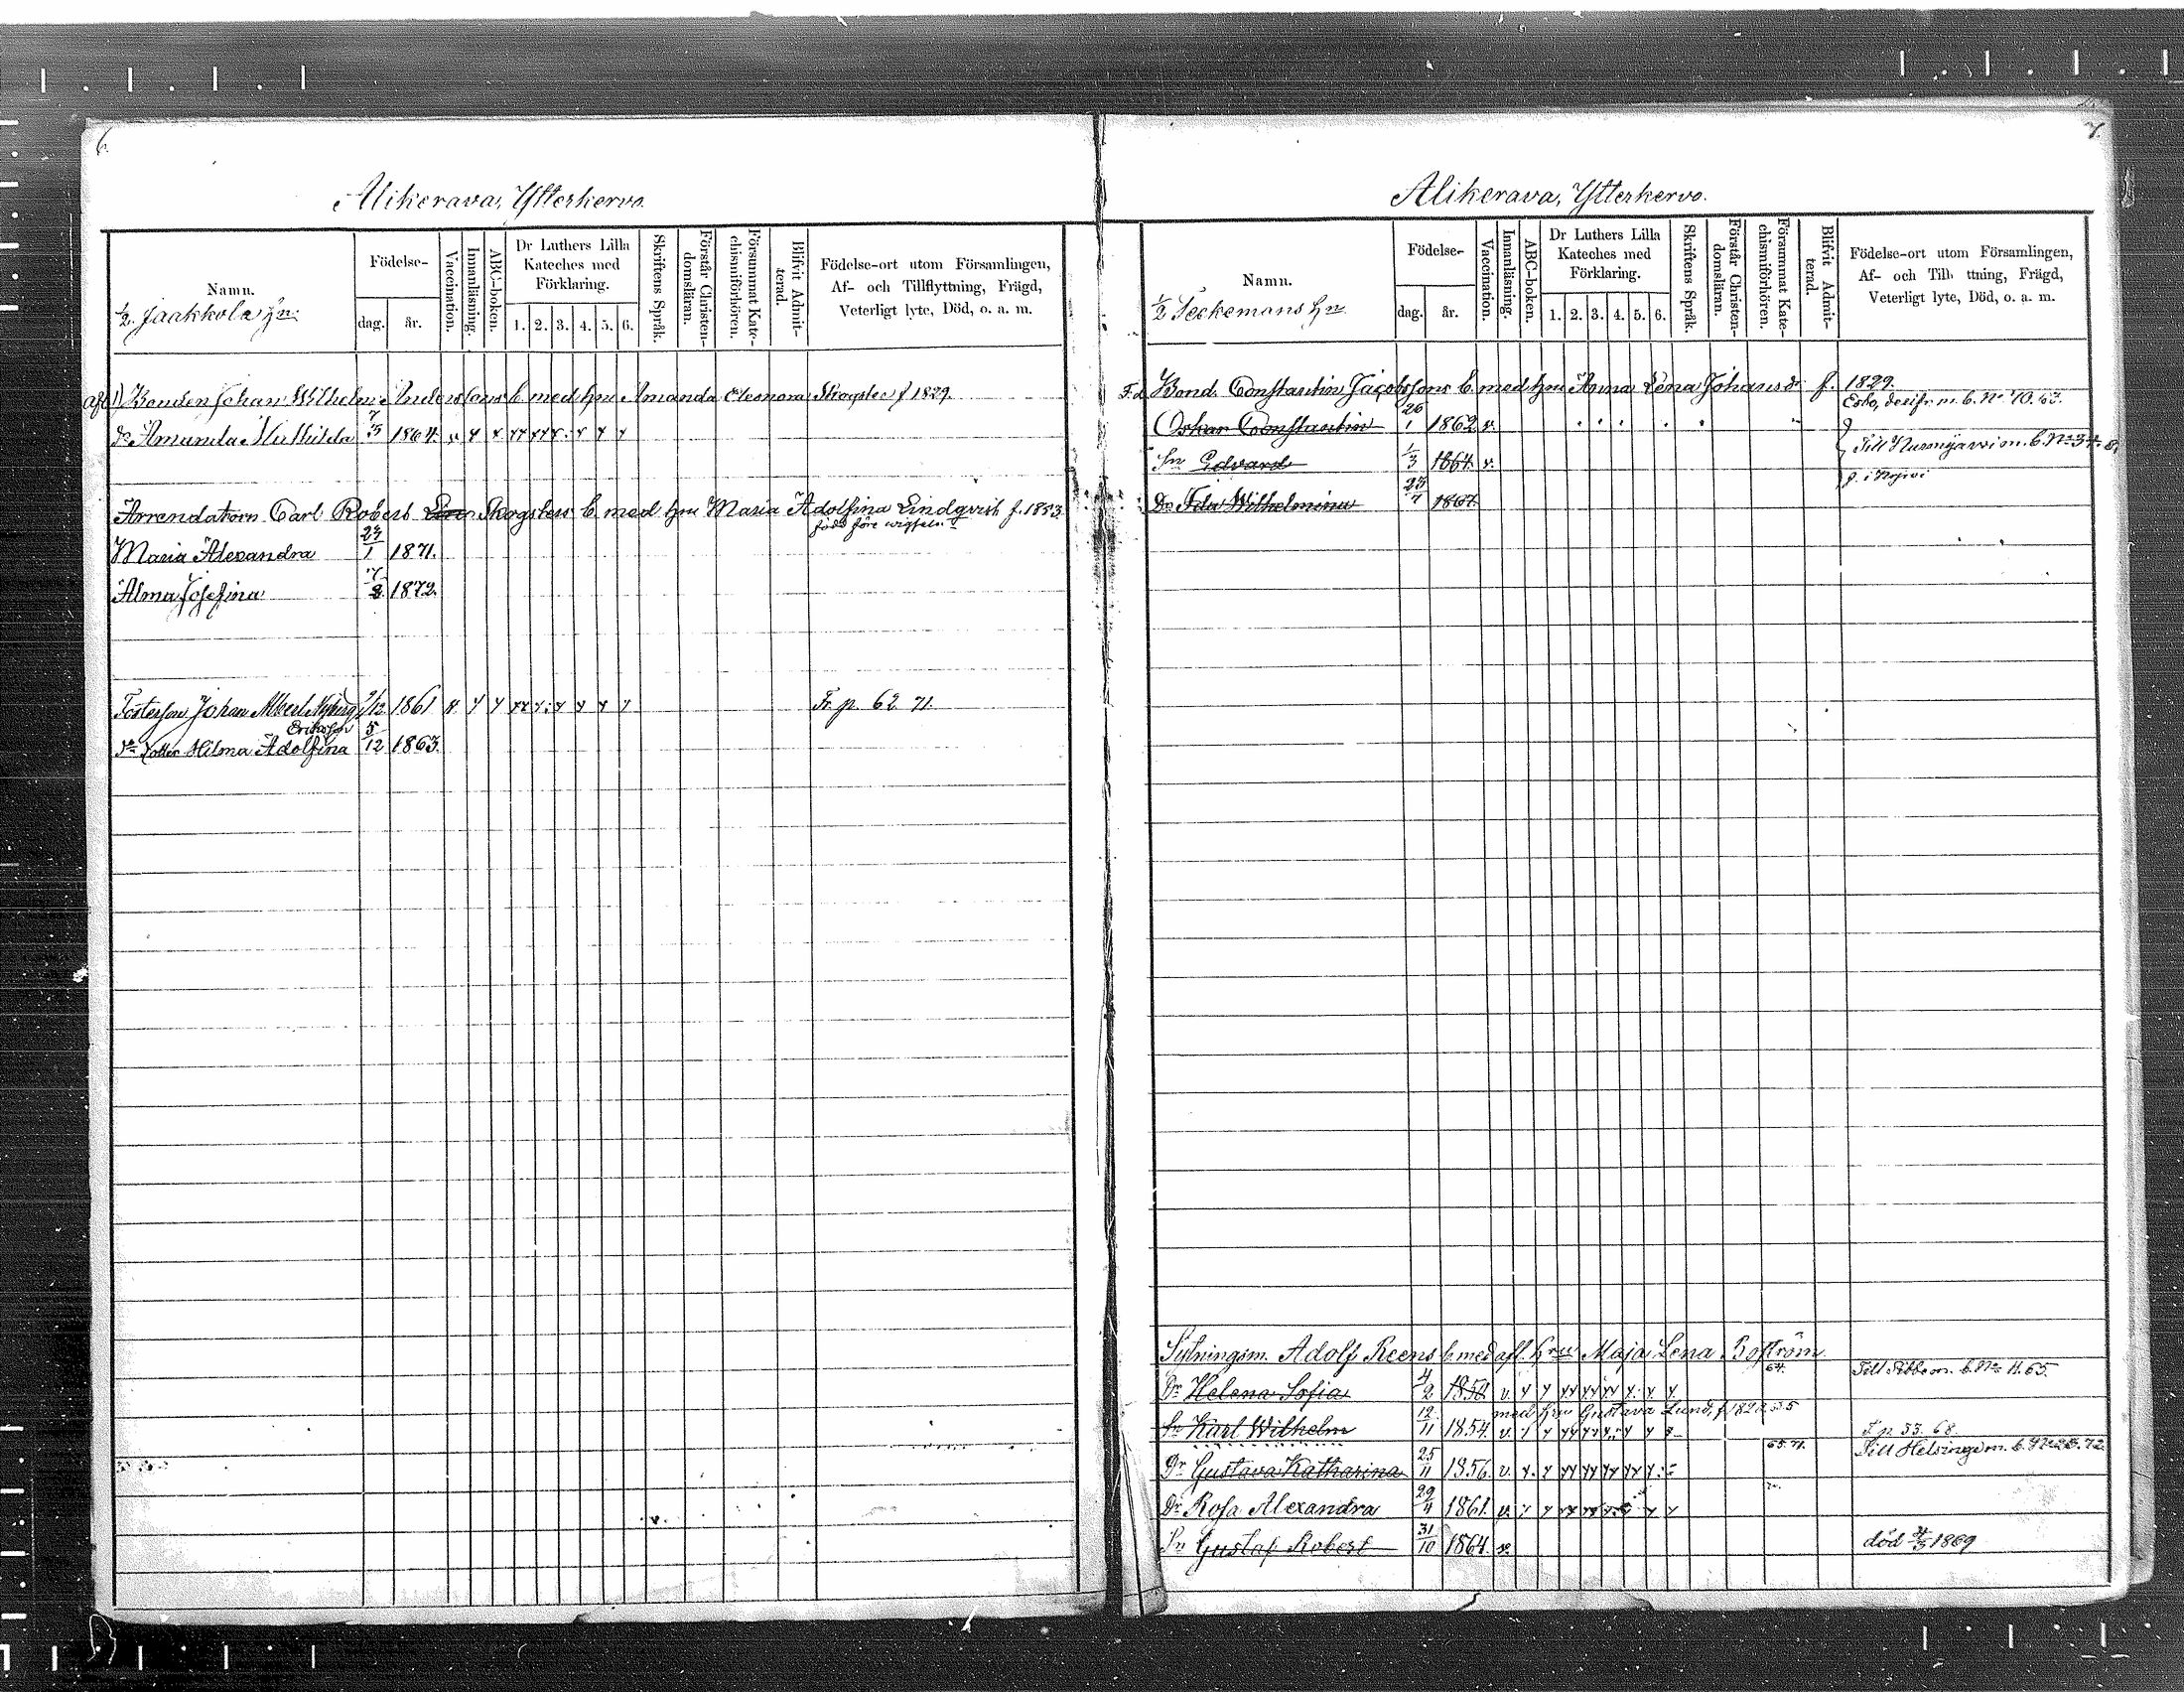 6.
Alikerava, Ytterkervo.
Namn.
½ Jaakkola hn.
Födelse-
dag.
år.
Vaccination.
Innanläsning.
ABC-boken.
Dr Luthers Lilla
Kateches med
Förklaring.
1. 2. 3. 4. 5. 6.
Skriftens Språk.
Förstår Christen-
domsläran.
Försummat Kate-
chismiförhören.
Blifvit Admit-
terad.
Födelse-ort utom Församlingen,
Af- och Tillflyttning, Frägd,
Veterligt lyte, Död, o. a. m.
Bonden Johan Wilhelm Anderssons b. med hru Amanda Eleonora Skogster f 1829.
dr Amanda Mathilda 7/5 1864. v
Arrendatorn Carl Robert Skogsters b med hru Maria Adolfina Lindqvist f. 1853.
född före wigseln
Maria Alexandra 23/1 1871.
Alma Josefina 7/2 1872.
Fosterson Johan Albert Nyberg 1861 Fr. p. 62 71.
Eriksson
dotter Hilma Adolfina 5/12 1863.
7.
Alikerava, Ytterkervo.
Namn.
½ Teckemans hn
Födelse-
dag.
år.
Vaccination.
Innanläsning.
ABC-boken.
Dr Luthers Lilla
Kateches med
Förklaring.
1. 2. 3. 4. 5. 6.
Skriftens Språk.
Förstår Christen-
domsläran.
Försummat Kate-
chismiförhören.
Blifvit Admit-
terad.
Födelse-ort utom Församlingen,
Af- och Till ttning, Frägd,
Veterligt lyte, Död, o. a. m.
F.d. Bond. Constantin Jacobssons b. med hru Anna Lena Johansdr f. 1829.
Esbo, m. b. No 70. 63.
Oskar Constantin 26/1 1862 v.
Till Nurmijärvi m. b. No 34.
Sn Edvard 1/3 1864. v.
Dr Ida Wilhelmina 23/7 1867.
Sytningsm. Adolf Reens b med afl. hru Maja Lena Boström
64.
Dr Helena Sofia 4/2 1851. v. Till Sibbo m. b. No 11. 65.
med hru Gustava Lund, f 182
Sn Karl Wilhelm 12/11 1854. v. F. p 33. 68.
65. 71.
Till Helsinge m. b. No 28. 72.
Dr Gustava Katharina 25/11 1856. v.
Dr Rosa Alexandra 29/11 1861. v.
Sn Gustaf Robert 31/10 1864. v. död 1869